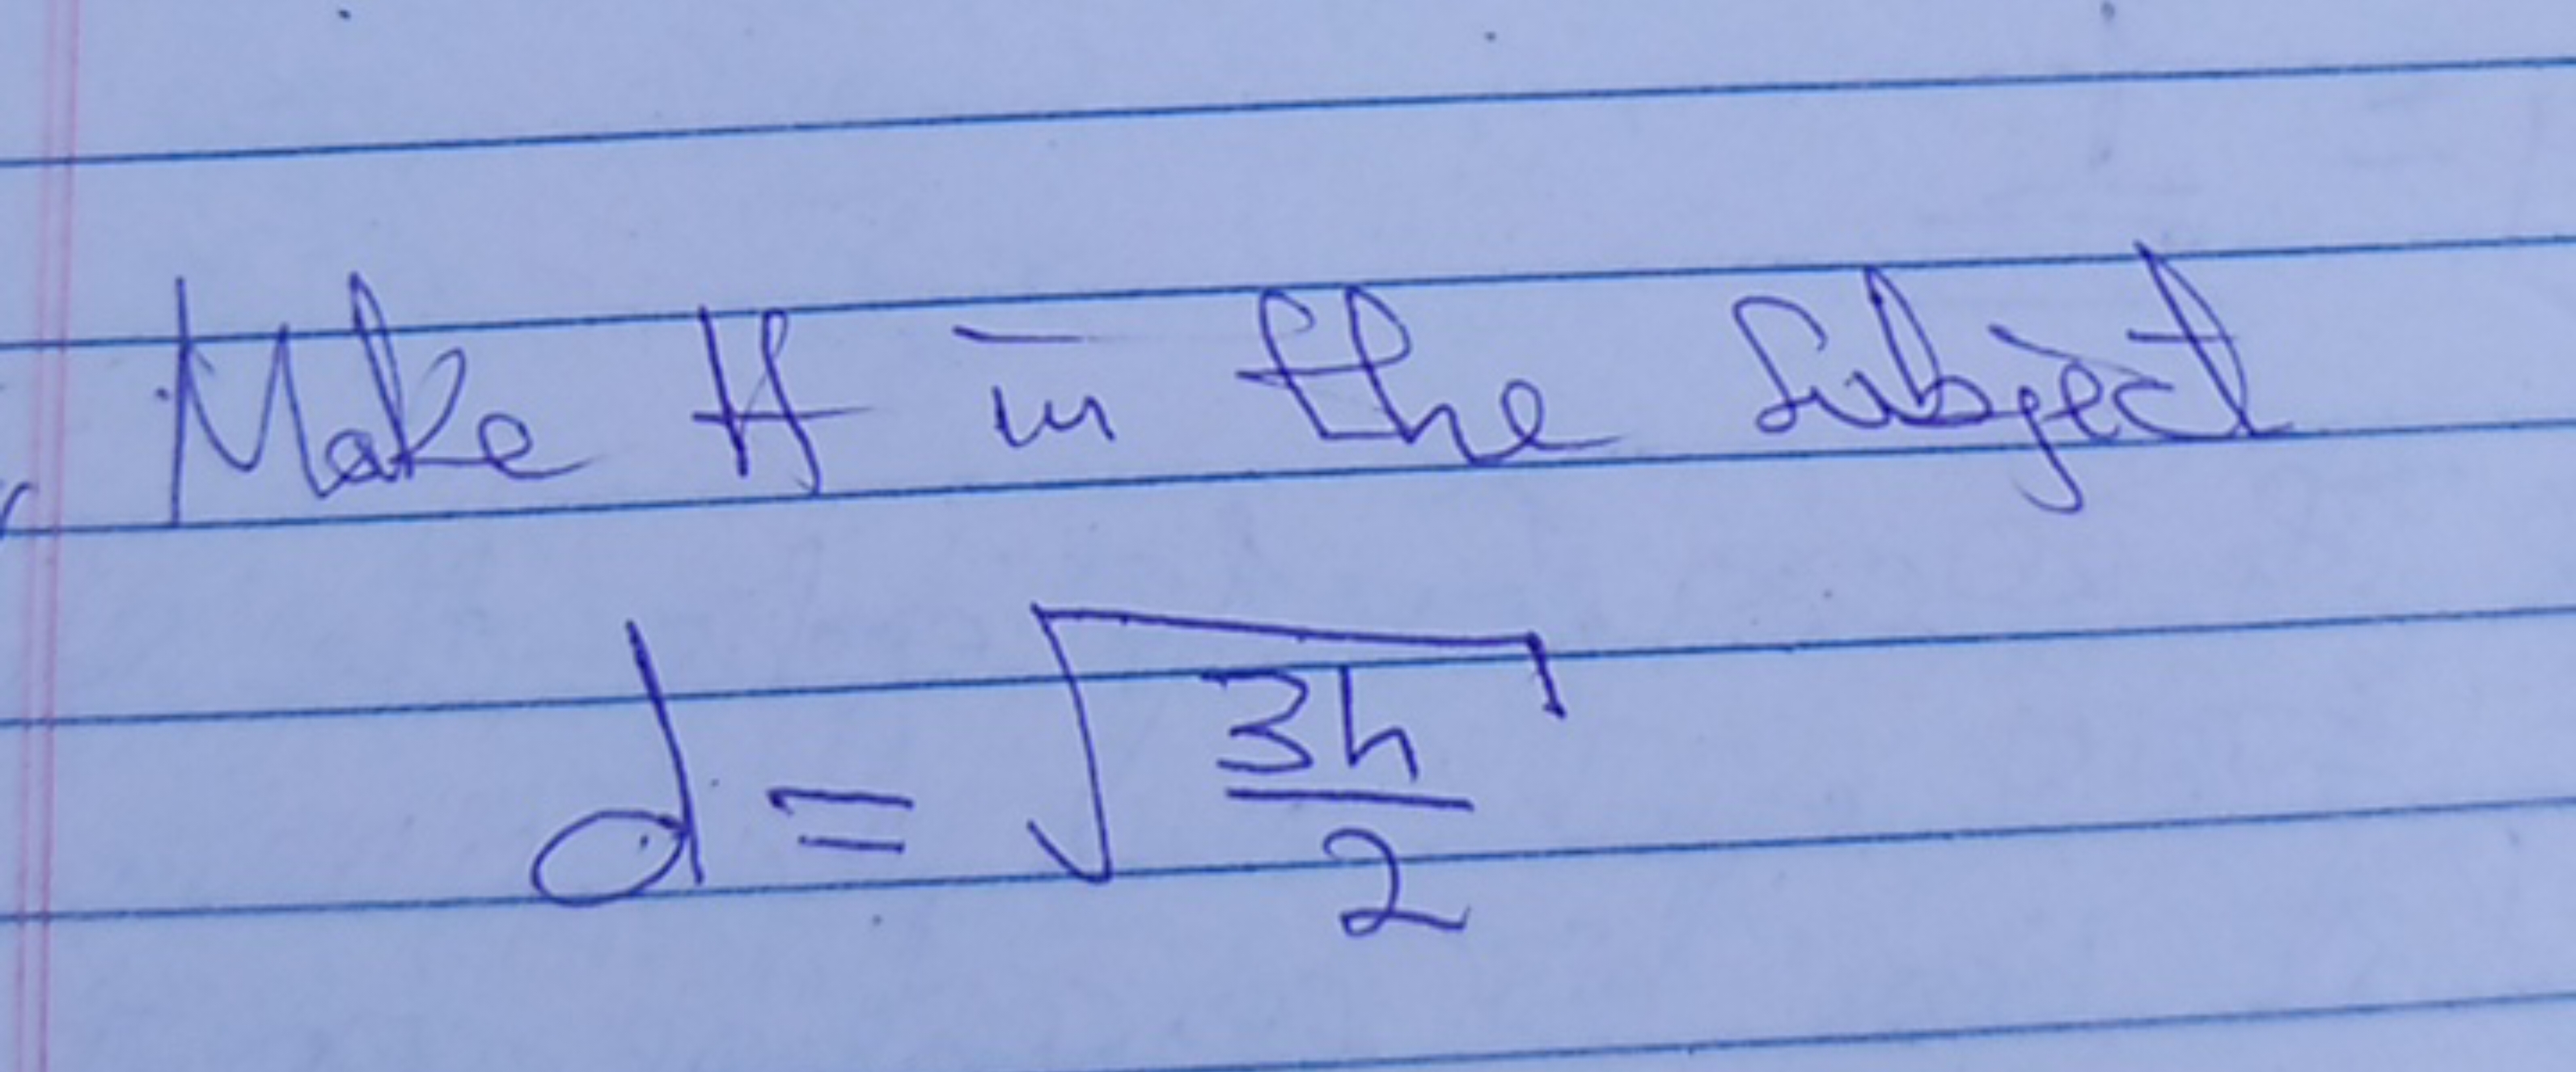 Make H in the Subject
d = √(3h/2)